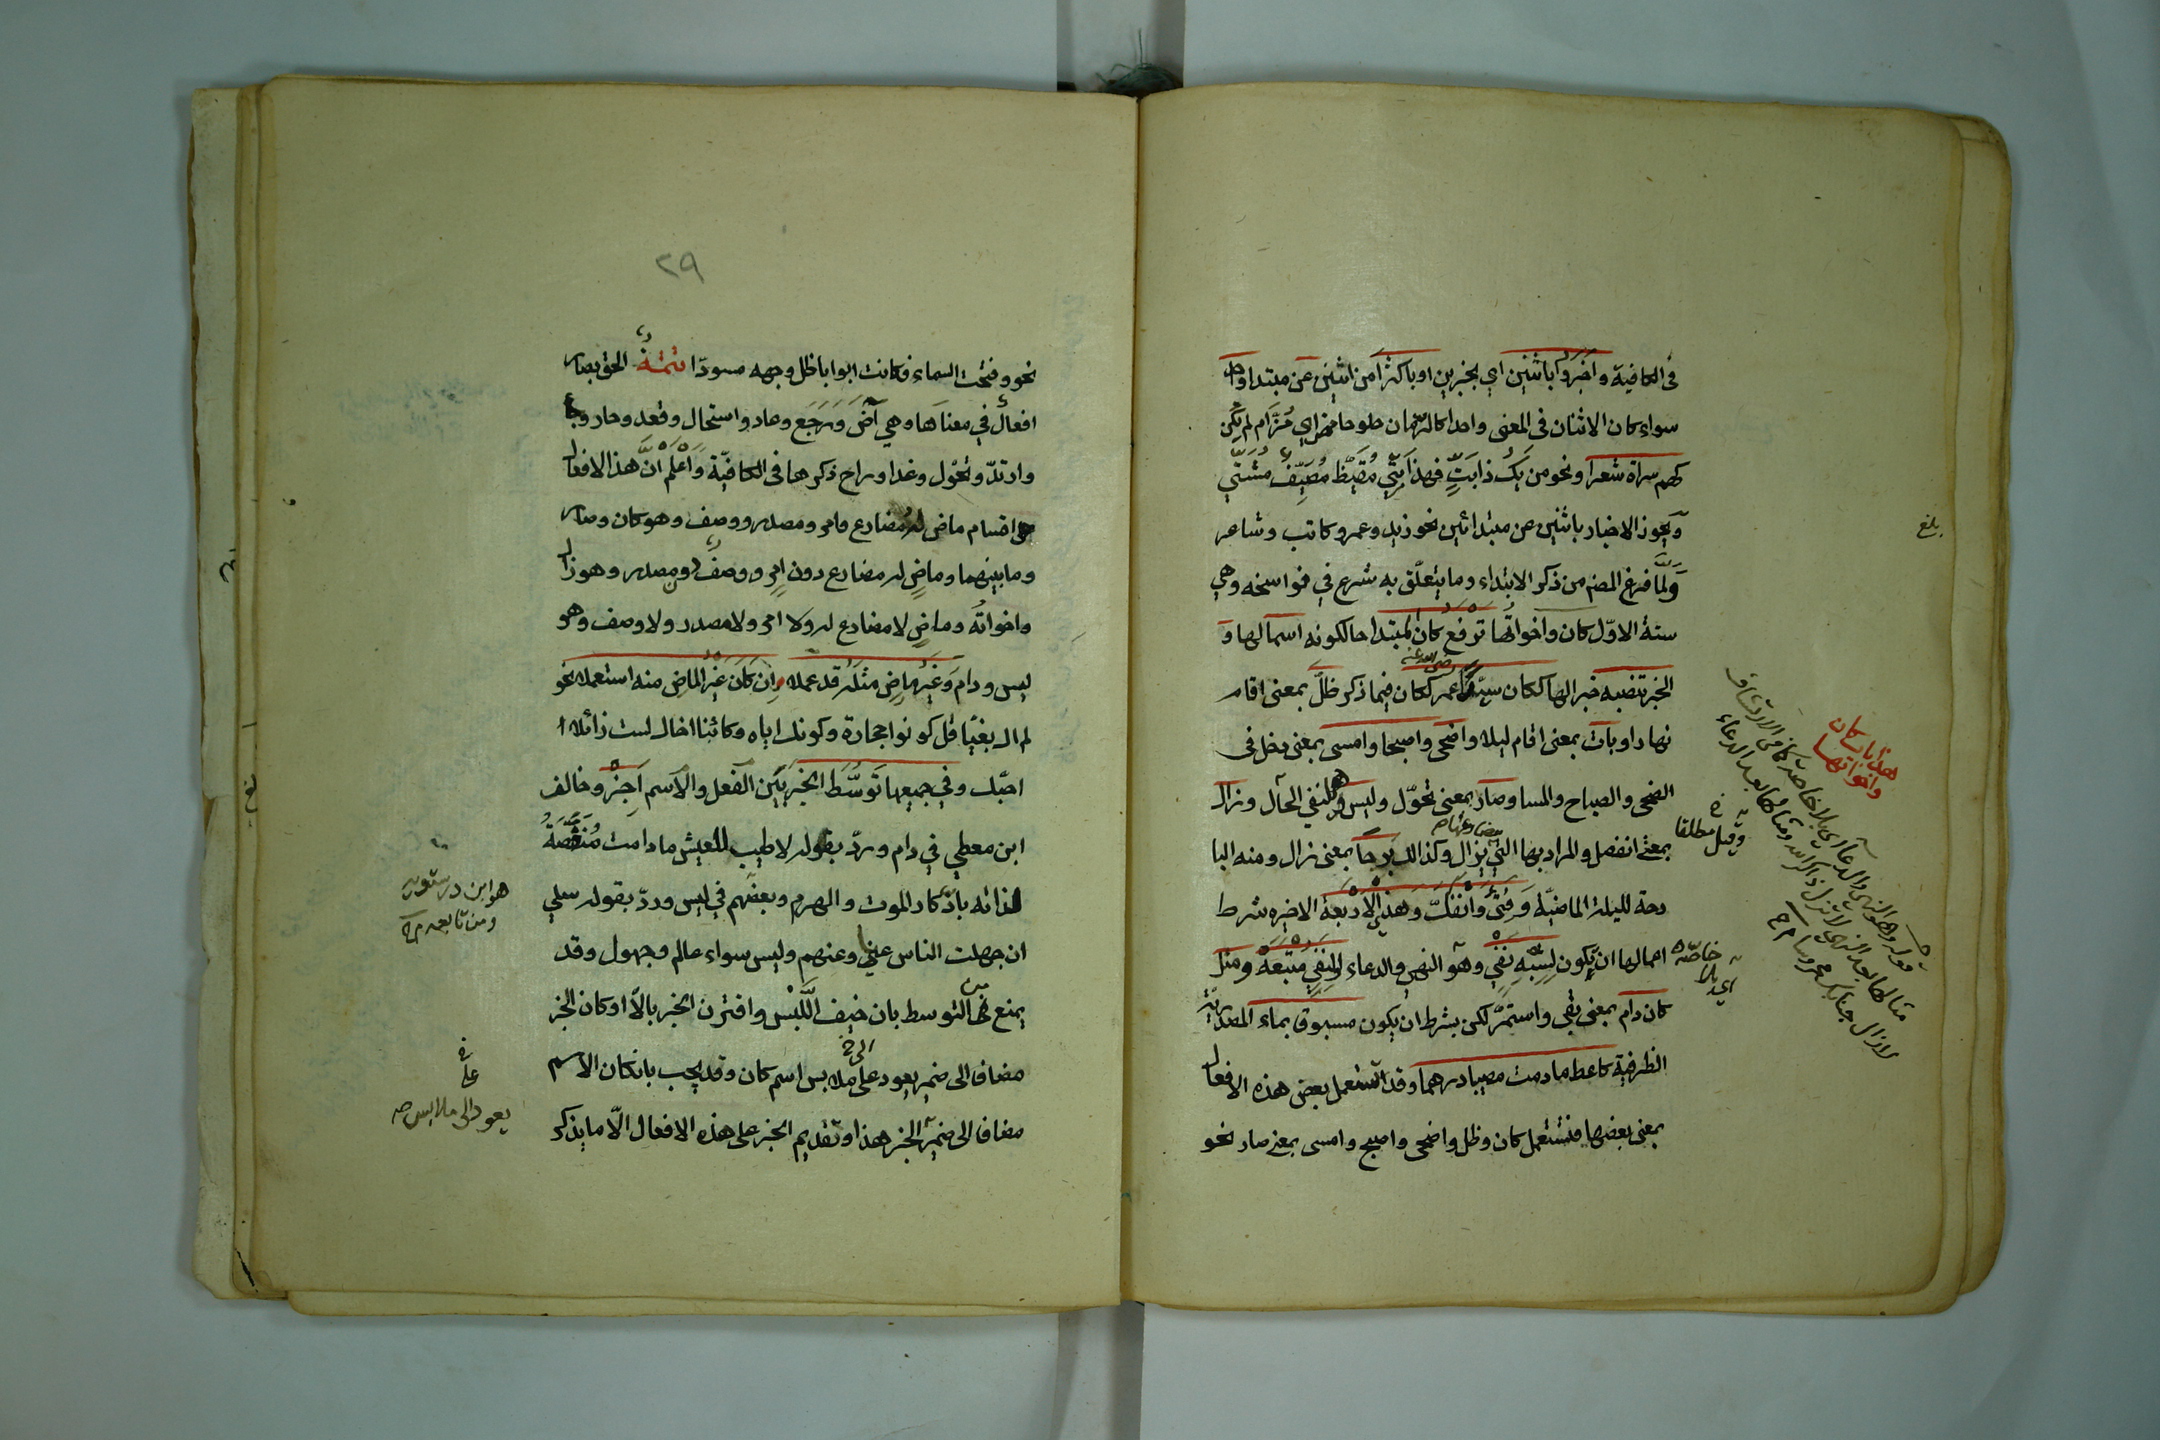 في الكافية واخبروا باثنين اي بخبرين او باكثرا من اثنين عن مبتدا واحد
سواء كان الاثنان في المعنى واحدا كالرمان حلو حامض اي مز ام لم يكن
كهم سراة شعرا ونحو من يك ذا بتٍّ فهذا بتّي مُقيّظ مُصيّف مُشتّي
ويجوز الاخبار باثنين عن مبتدائين نحو زيد وعمرو كاتب وشاعر
ولمّا فرغ المص من ذكر الابتداء وما يتعلّق به شرع في نواسخه وهي
ستة الاوّل كان واخواتُها تَرْفع كان المبتدا حالكونه اسما لها و
الخبر تنصبه خبرا لها ككان سيّدا عمر ككان فيما ذكر ظلّ بمعنى اقام
رضي الله عنه
نهارا وبات بمعنى اقام ليلا واضحى واصبحا وامسى بمعنى دخل في
الضحى والصباح والمسا وصار بمعنى تحوّل وليس وهي لنفي الحال وزال
وقيل مطلقا
بمعنى انفصل والمراد بها التي يزال وكذالك برحا بمعنى زال ومنه البا
مضارعها
رحة لليلة الماضيّة وَفتئ وانفكّ وهذي الاَرْبعة الاخيره شرط
اعمالها ان يكون لِشِبْهِ نَفْيٍ وهو النهي والدعاء او لنفي مُتْبَعَهْ ومثل
خاصّة
اي بلا
كان دام بمعنى بقي واستمرّ لكن بشرط ان يكون مسبوق بماء المصدريّة
الظرفية كاعط ما دمت مصيبا درهما وقد تستعمل بعض هذه الافعال
بمعنى بعضها فتستعمل كان وظل واضحى واصبح وامسى بمعنى صار نحو
هذا باب كان
واخواتها
بلغ
٢٩
نحو وفتحت السماء فكانت ابوابا ظل وجهه مسودّا تتمة الحق بصار
افعالٌ في معناها وهي آضَ وَرَجَع وعاد واستحال وقعد وحار وجاء
وارتدّ وتحوّل وغدا وراح ذكرها في الكافيّة وَاعْلَمْ انَّ هذا الافعال
اقسام ماض له مُضارع وامر ومصدر ووصف وهو كان وصار
وما بينهما وماضٍ له مضارع دون امرٍ ووصفٌ ومصدر وهو زال
واخواتُه وماضٍ لا مضارع له ولا امر ولا مصدر ولا وصف وهو
ليس ودام وَغَيْرُ ماضٍ مثله قد عمله اِن كَانَ غَيْرُ الماضِ منه استعمله نحو
لم اك بغيًا قل كونوا حجارة وكونك اياه وكائنا اخاك لست زائلا ا
احبّك وفي جميعها تَوسُّطَ الخبر بَيْن الفعل والاسم اَجِزْ وخالف
ابن معطي في دام وردّ بقوله لا طيب للعيش ما دامت مُنَغّصَةٌ
لذاته بادّكار الموت والهرم وبعضُهم في ليس وردّ بقوله سلي
هو ابن درستويه
ومن تابعه
ان جهلت الناس عني وعنهم وليس سواء عالم وجهول وقد
يمنع من التوسط بان خيف اللَّبْس واقترن الخبر بالاّ او كان الخبر
مضافا الى ضمير يعود على ملابس اسم كان وقد يجب بان كان الاسم
يعود الى ملابس
مضافا الى ضمير الخبر هذا وتقديم الخبر على هذه الافعال الاّ ما يذكر